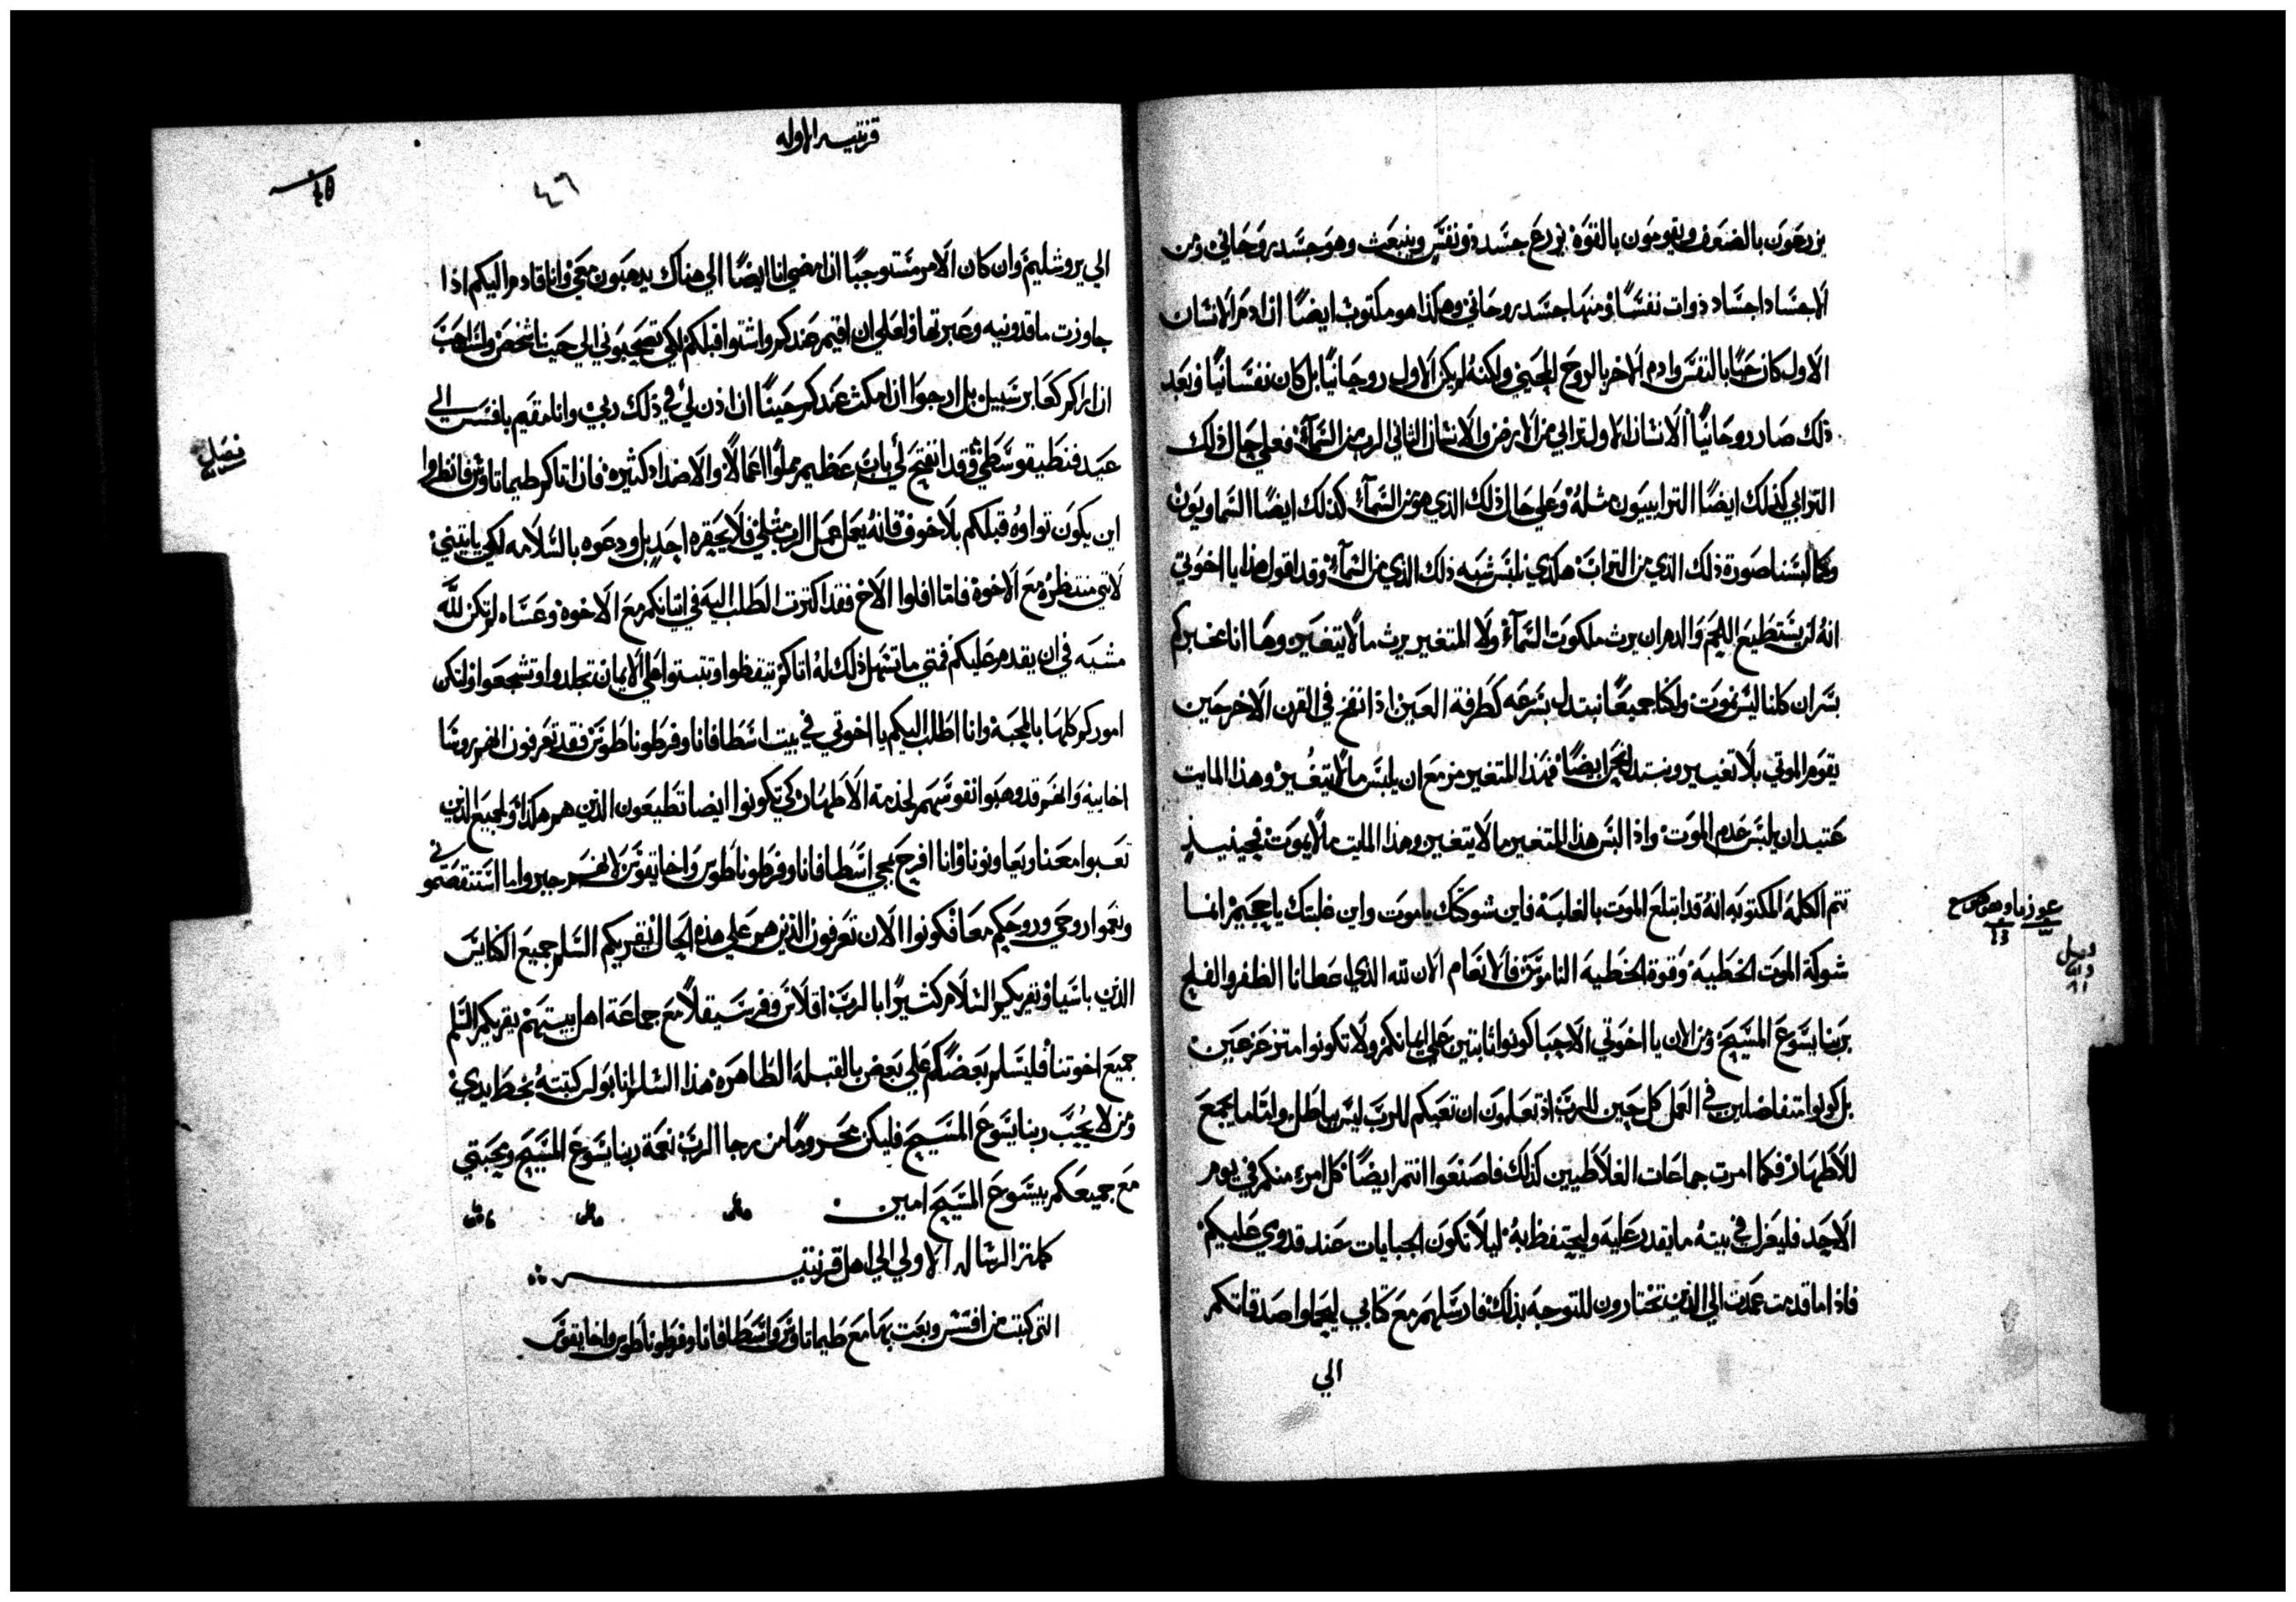 يزرعون بالضعف ويقومون بالقوة يزرع جسد ذو نفس وينبعث وهو جسد روحاني ومن
الاجساد اجساد ذوات نفسًا ومنها جسد روحاني وهكذا هو مكتوب ايضًا ان ادم الانسان
الاول كان حيًا بالنفس وادم الاخر بالروح المحيي ولكنه لم يكن الاول روحانيًا بل كان نفسانيًا وبعد
ذلك صار روحانيًا الانسان الاول ترابي من الارض والانسان الثاني الرب من السمآء فعلي حال ذلك
الترابي كذلك ايضًا الترابييون مثله وعلي حال ذلك الذي هو من السمآء كذلك ايضًا السماويون
وكما لبسنا صورة ذلك الذي من التراب هكدي نلبس شبه ذلك الذي من السمآء وقد اقول هذا يا اخوتي
انه لن يستطيع اللحم والدم ان يرث ملكوت السمآء ولا المتغير يرث ما لا يتغير وها انا مخبركم
بسر ان كلنا ليس نموت ولكنا جميعًا نبتدل بسرعه كطرفة العين اذا نفخ في القرن الاخر حين
يقوم الموتي بلا تغيير ونبتدل نحن ايضًا فهذا المتغير مزمع ان يلبس ما لا يتغير وهذا المايت
عتيد ان يلبس عدم الموت واذا لبس هذا المتغير ما لا يتغير وهذا الميت ما لا يموت فحينيذ
تتم الكلمة المكتوبه انه قد ابتلع الموت بالغلبة فاين شوكتك يا موت واين غلبتك يا جحيم انما
شوكة الموت الخطية وقوة الخطية الناموس فالانعام الان لله الذي اعطانا الظفر والفلج
بربنا يسوع المسيح ومن الان يا اخوتي الاحبا كونوا ثابتين علي ايمانكم ولا تكونوا متزعزعين
بل كونوا متفاضلين في العمل كل حين للرب اذ تعلمون ان تعبكم للرب ليس بباطل ولتاما يجمع
للاطهار فكما امرت جماعات الغلاطيين كذلك فاصنعوا انتم ايضًا كل امرء منكم في يوم
الاحد فليغزل في بيته ما يقدر عليه وليحتفظ به ليلا تكون الجبايات عند قدومي عليكم
فاذا ما قدمت عمدت الي الذين تختارون للتوجه بذلك فارسلهم مع كتابي ليحملوا صدقاتكم
الي
قرنتيه الاوله
٤٦
الي يروشليم وان كان الامر مستوجبًا ان امضي انا ايضًا الي هناك يدهبون معي وانا قادم اليكم اذا
جاوزت ماقدونيه وعبرتها ولعلي ان اقيم عندكم واشتوا قبلكم لكي تصحبوني الي حيث اشخص ولست احب
ان اراكم كعابر سبيل بل ارجوا ان امكث عندكم حينًا ان اذن لي في ذلك ربي وانا مقيم بافسس الي
عيد فنطيقوسطي وقد انفتح لي باب عظيم مملوا اعمالًا والاضداد كثيره فان اتاكم طيماتاوس فانظروا
فصل
اين يكون تواوه قبلكم بلا خوف فانه يعمل عمل الرب مثلي فلا يحقره احد بل ودعوه بالسلامه لكي ياتيني
لانني منتظره مع الاخوة فاما افلوا الاخ فقد اكترت الطلب اليه في اتيانكم مع الاخوة وعساه لم تكن لله
مشيه في ان يقدم عليكم فمتي ما تسهل ذلك له اتاكم تيقظوا وتبتوا علي الايمان تجلدوا وتشجعوا ولتكن
اموركم كلها بالمحبة وانا اطلب اليكم يا اخوتي في بيت اسطافانا وفرطوناطوس فقد تعرفون انهم روسا
اخاييه وانهم قد وهبوا نفوسهم لخدمة الاطهار كي تكونوا ايضا تطيعون الذين هم هكذا ولجميع الذين
تعبوا معنا ويعاونونا وانا افرح بمجي اسطافانا وفرطوناطوس واخايقوس لانهم جبروا ما استنقصتموني
ونعموا روحي وروحكم معًا فكونوا الان تعرفون الذين هم علي هذه الحال يقريكم السلم جميع الكنايس
الذين باسيا ويقريكم السلام كثيرًا بالرب اقلاس وفرسقلا مع جماعة اهل بيتهم يقريكم السلم
جميع اخوتنا فليسلم بعضكم علي بعض بالقبله الطاهره هذا السلم انا بولس كتبته بخط يدي
ومن لا يحب ربنا يسوع المسيح فليكن محرومًا من رجا الرب نعمة ربنا يسوع المسيح ومحبتي
مع جميعكم بيسوع المسيح امين
كلمة الرساله الاولي الي اهل قرنتيه
التي كتبت من افسس وبعت بها مع طيماتاوس واسطافانا وفرطوناطوس واخايقوس